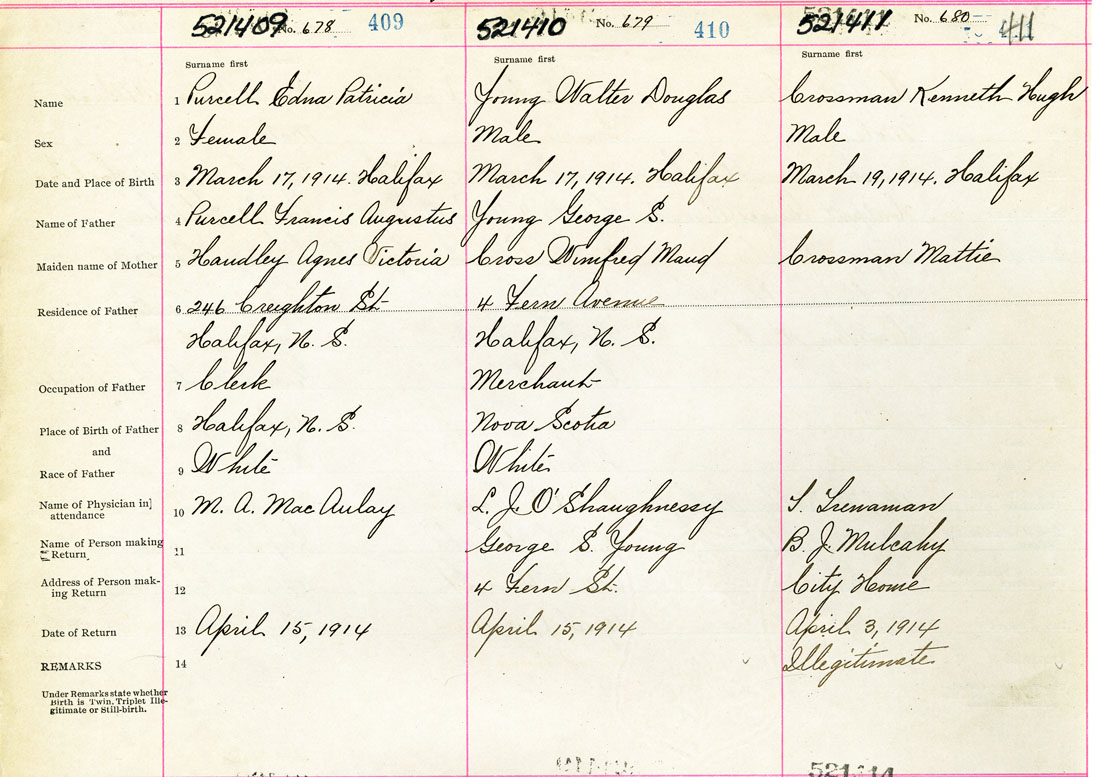 521409 No. 678 409
521410 No. 679 410
521411 No. 680 411
Surname first Surname first Surname first
Name 1 Purcell Edna Patricia Young Walter Douglas Crossman Kenneth Hugh
Sex 2 Female Male Male
Date and Place of Birth 3 March 17, 1914. Halifax March 17, 1914. Halifax March 19, 1914. Halifax
Name of Father 4 Purcell Francis Augustus Young George S.
Maiden name of Mother 5 Handley Agnes Victoria Cross Winifred Maud Crossman Mattie
Residence of Father 6 246 Creighton St. 4 Fern Avenue
Halifax, N. S. Halifax, N. S.
Occupation of Father 7 Clerk Merchant
Place of Birth of Father 8 Halifax, N. S. Nova Scotia
and
Race of Father 9 White White
Name of Physician in] attendance 10 M. A. MacAulay L. J. O'Shaughnessy S. Trenaman
Name of Person making Return 11 George S. Young B. J. Mulcahy
Address of Person mak-
ing Return 12 4 Fern St. City Home
Date of Return 13 April 15, 1914 April 15, 1914 April 3, 1914
REMARKS 14 Illegitimate
Under Remarks state whether
Birth is Twin, Triplet Ille-
gitimate or Still-birth.